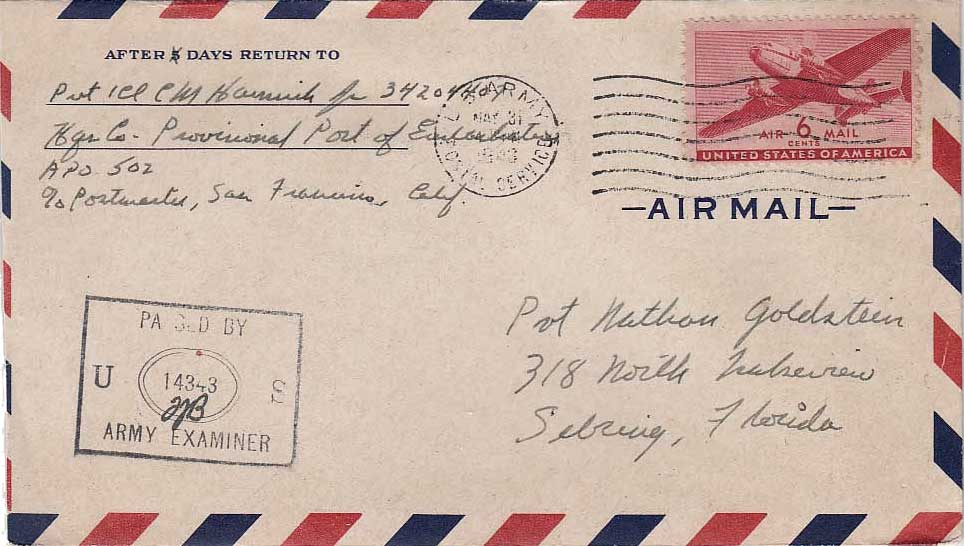 AFTER 5 DAYS RETURN TO
Pvt 1Cl C M Jr 34204407
Hqs Co - Provisional Port of Embarkation
APO 502
c/o Postmaster, San Francisco, Calif.
U.S. ARMY
MAY 31
1943
POSTAL SERVICE
AIR 6 MAIL
CENTS
UNITED STATES OF AMERICA
—AIR MAIL—
Pvt Nathan Goldstein
318 North Lakeview
Sebring, Florida
PASSED BY
U 14343 S
ARMY EXAMINER